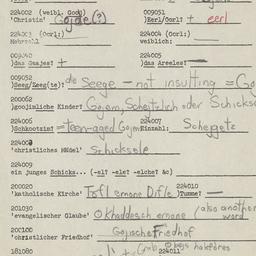 224002 (weibl. Godg)
'Christin' Gojde(?)
009051
)Eerl/Oorl: + eerl
224003 (Oorl:)
Mehrzahl
224004 (Oorl:)
weiblich:
009040
)das Gnajes! +
224005
)das Areeles:
009052
)Seeg/Zeeg(te): de Seege - not insulting = Go
200062
)gojimliche Kinder? Gojem, Scheitzlich oder Schickse
224006
)Schkootzim? = teen-aged Gojim
224007
Einzahl: Schegetz
224008
'christliches Mädel' Schicksele
224009
ein junges Schicks... (-el? -ele? -elche? äc)
200020
'katholische Kirche' Tofl emone Difle
224010
)Tumme? —
201030
'evangelischer Glaube' O khaddesch emone (also another word
200100
'christlicher Friedhof' Gojische Friedhof
181080
224011